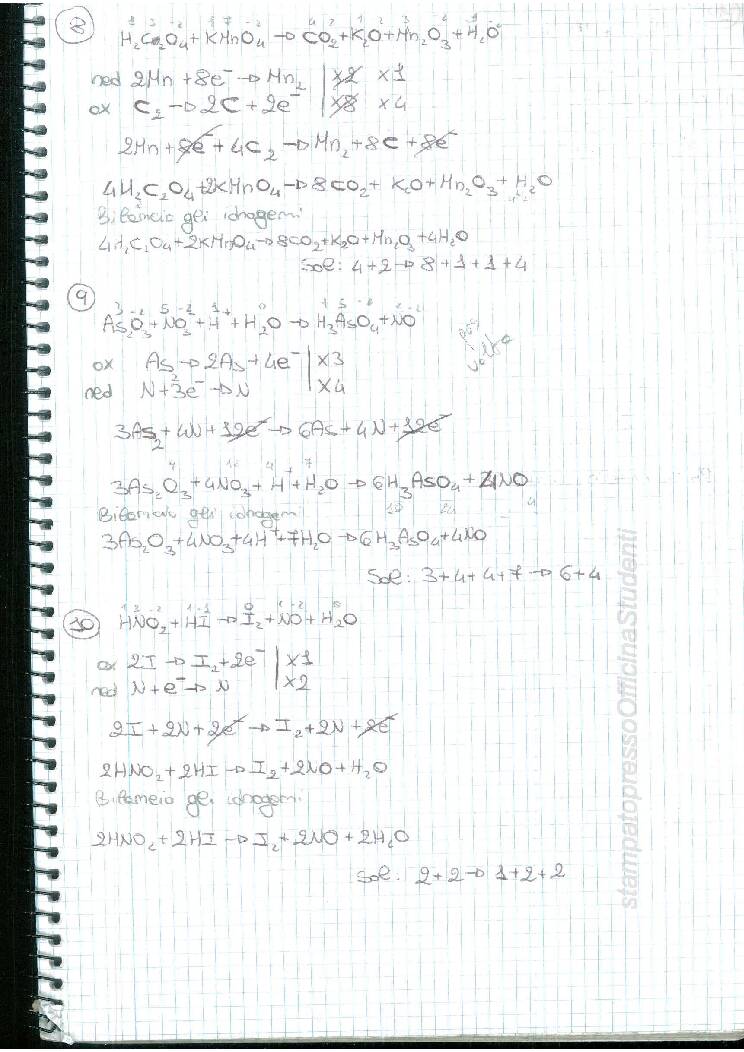 8
1 3 -2 1 7 -2 4 -2 1 -2 3 -2 1 -2
H₂C₂O₄ + KMnO₄ → CO₂ + K₂O + Mn₂O₃ + H₂O
red 2Mn + 8e⁻ → Mn₂ | x2 x1
ox C₂ → 2C + 2e⁻ | x8 x4
2Mn + 8e⁻ + 4C₂ → Mn₂ + 8C + 8e⁻
4H₂C₂O₄ + 2KMnO₄ → 8CO₂ + K₂O + Mn₂O₃ + H₂O
Bilancio gli idrogeni
4H₂C₂O₄ + 2KMnO₄ → 8CO₂ + K₂O + Mn₂O₃ + 4H₂O
Sol: 4 + 2 → 8 + 1 + 1 + 4
9
3 -2 5 -2 1+
As₂O₃ + NO₃ + H + H₂O → H₃AsO₄ + NO
ox As₂ → 2As + 4e⁻ | x3
red N + 3e⁻ → N | x4
3As₂ + 4N + 12e⁻ → 6As + 4N + 12e⁻
3As₂O₃ + 4NO₃ + H⁺ + H₂O → 6H₃AsO₄ + 4NO
Bilancio gli idrogeni
3As₂O₃ + 4NO₃ + 4H⁺ + 7H₂O → 6H₃AsO₄ + 4NO
Sol: 3 + 4 + 4 + 7 → 6 + 4
10
HNO₂ + HI → I₂ + NO + H₂O
ox 2I → I₂ + 2e⁻ | x1
red N + e⁻ → N | x2
2I + 2N + 2e⁻ → I₂ + 2N + 2e⁻
2HNO₂ + 2HI → I₂ + 2NO + H₂O
Bilancio gli idrogeni
2HNO₂ + 2HI → I₂ + 2NO + 2H₂O
Sol: 2 + 2 → 1 + 2 + 2
stampatopressoOfficinaStudenti